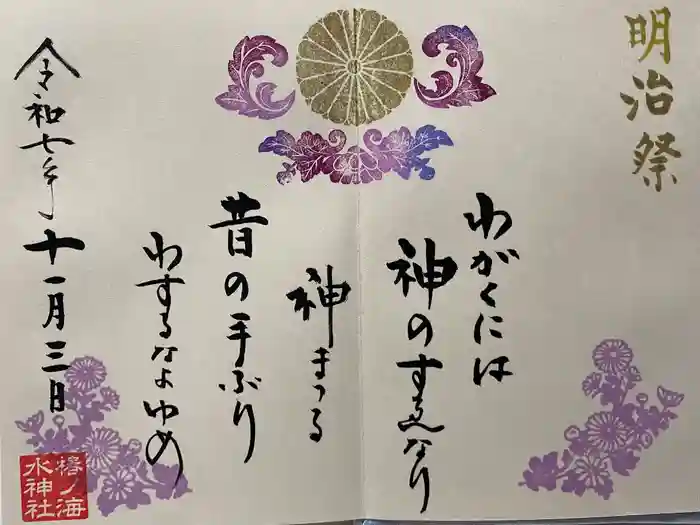 明治祭
わがくには
神のすゑなり
神まつる
昔の手ぶり
わするなよゆめ
令和七年
十一月三日
椿ノ海
水神社